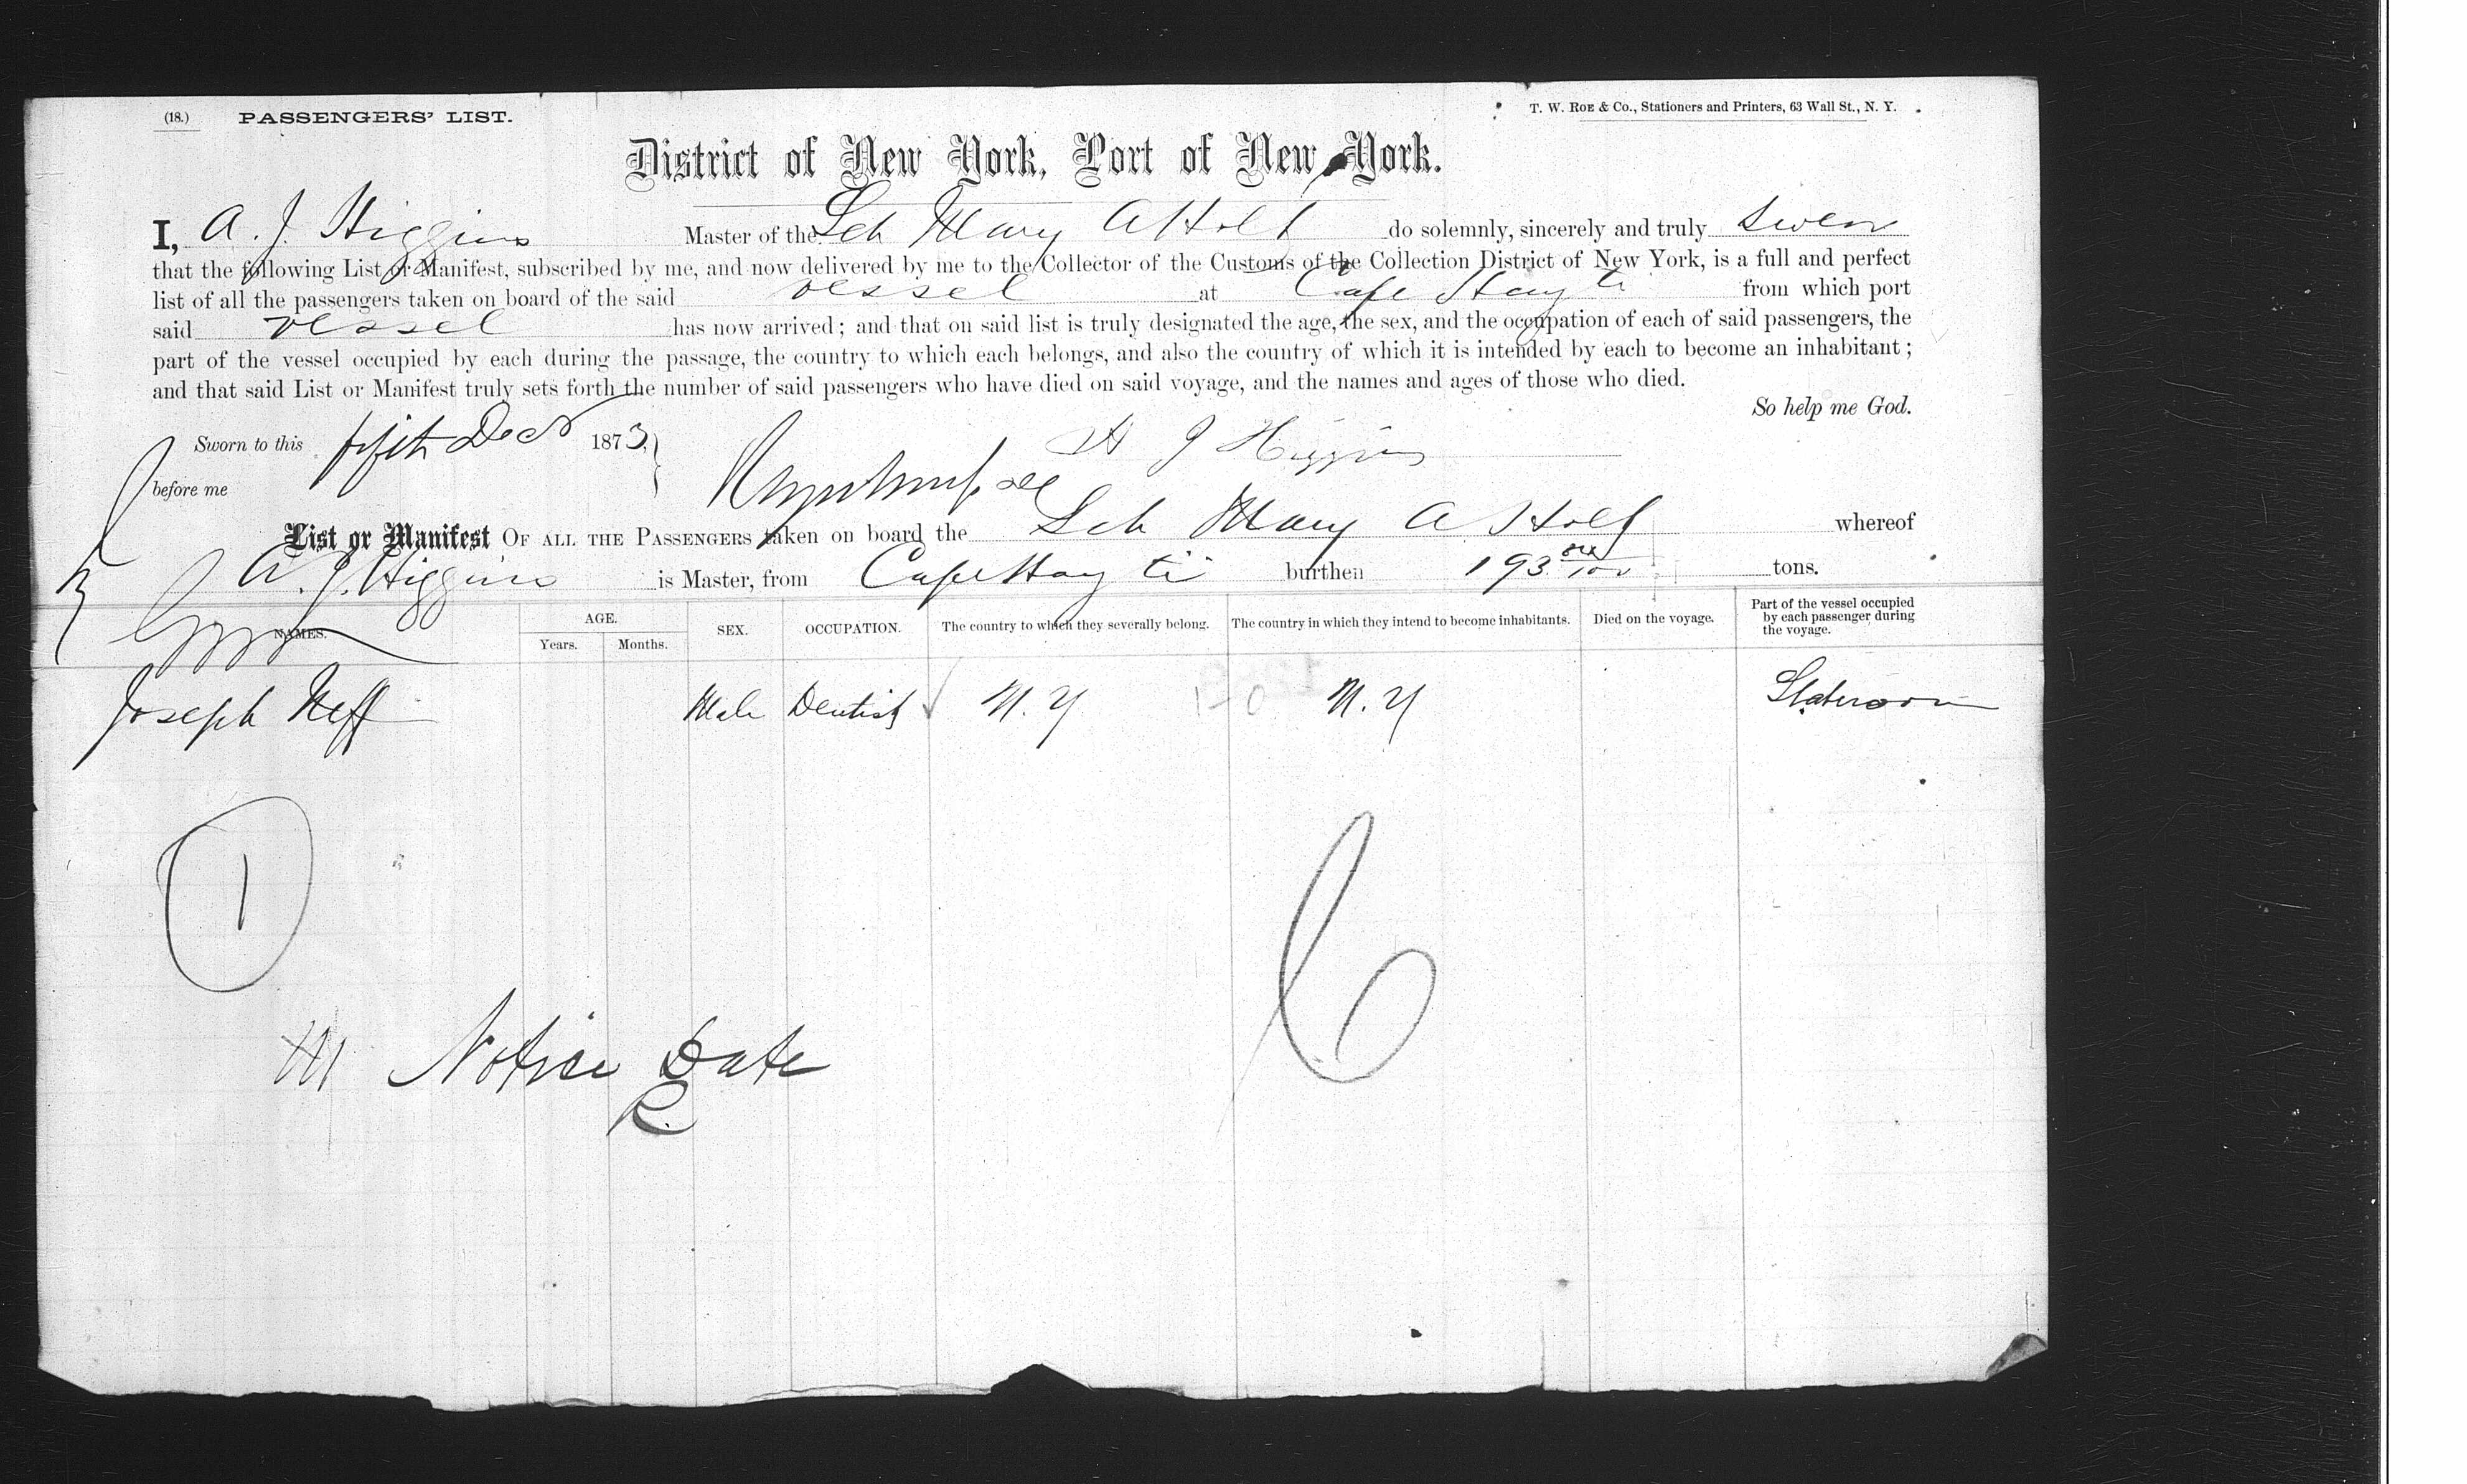 (18.) PASSENGERS' LIST.
T. W. ROE & CO., Stationers and Printers, 63 Wall St., N. Y.
District of New York, Port of New York.
I, A. J. Higgins Master of the Sch Mary A Holt do solemnly, sincerely and truly swear
that the following List or Manifest, subscribed by me, and now delivered by me to the Collector of the Customs of the Collection District of New York, is a full and perfect
list of all the passengers taken on board of the said vessel at Cape Hayti from which port
said vessel has now arrived; and that on said list is truly designated the age, the sex, and the occupation of each of said passengers, the
part of the vessel occupied by each during the passage, the country to which each belongs, and also the country of which it is intended by each to become an inhabitant;
and that said List or Manifest truly sets forth the number of said passengers who have died on said voyage, and the names and ages of those who died.
So help me God.
Sworn to this fifth Dec 1873
A J Higgins
before me
List or Manifest OF ALL THE PASSENGERS taken on board the Sch Mary A Holt whereof
A. J. Higgins is Master, from Cape Hayti burthen 193 /100 tons.
NAMES. AGE. Years. Months. SEX. OCCUPATION. The country to which they severally belong. The country in which they intend to become inhabitants. Died on the voyage. Part of the vessel occupied by each passenger during the voyage.
Joseph Neff Male Dentist N. Y N. Y Stateroom
1
6
Notice Date
R